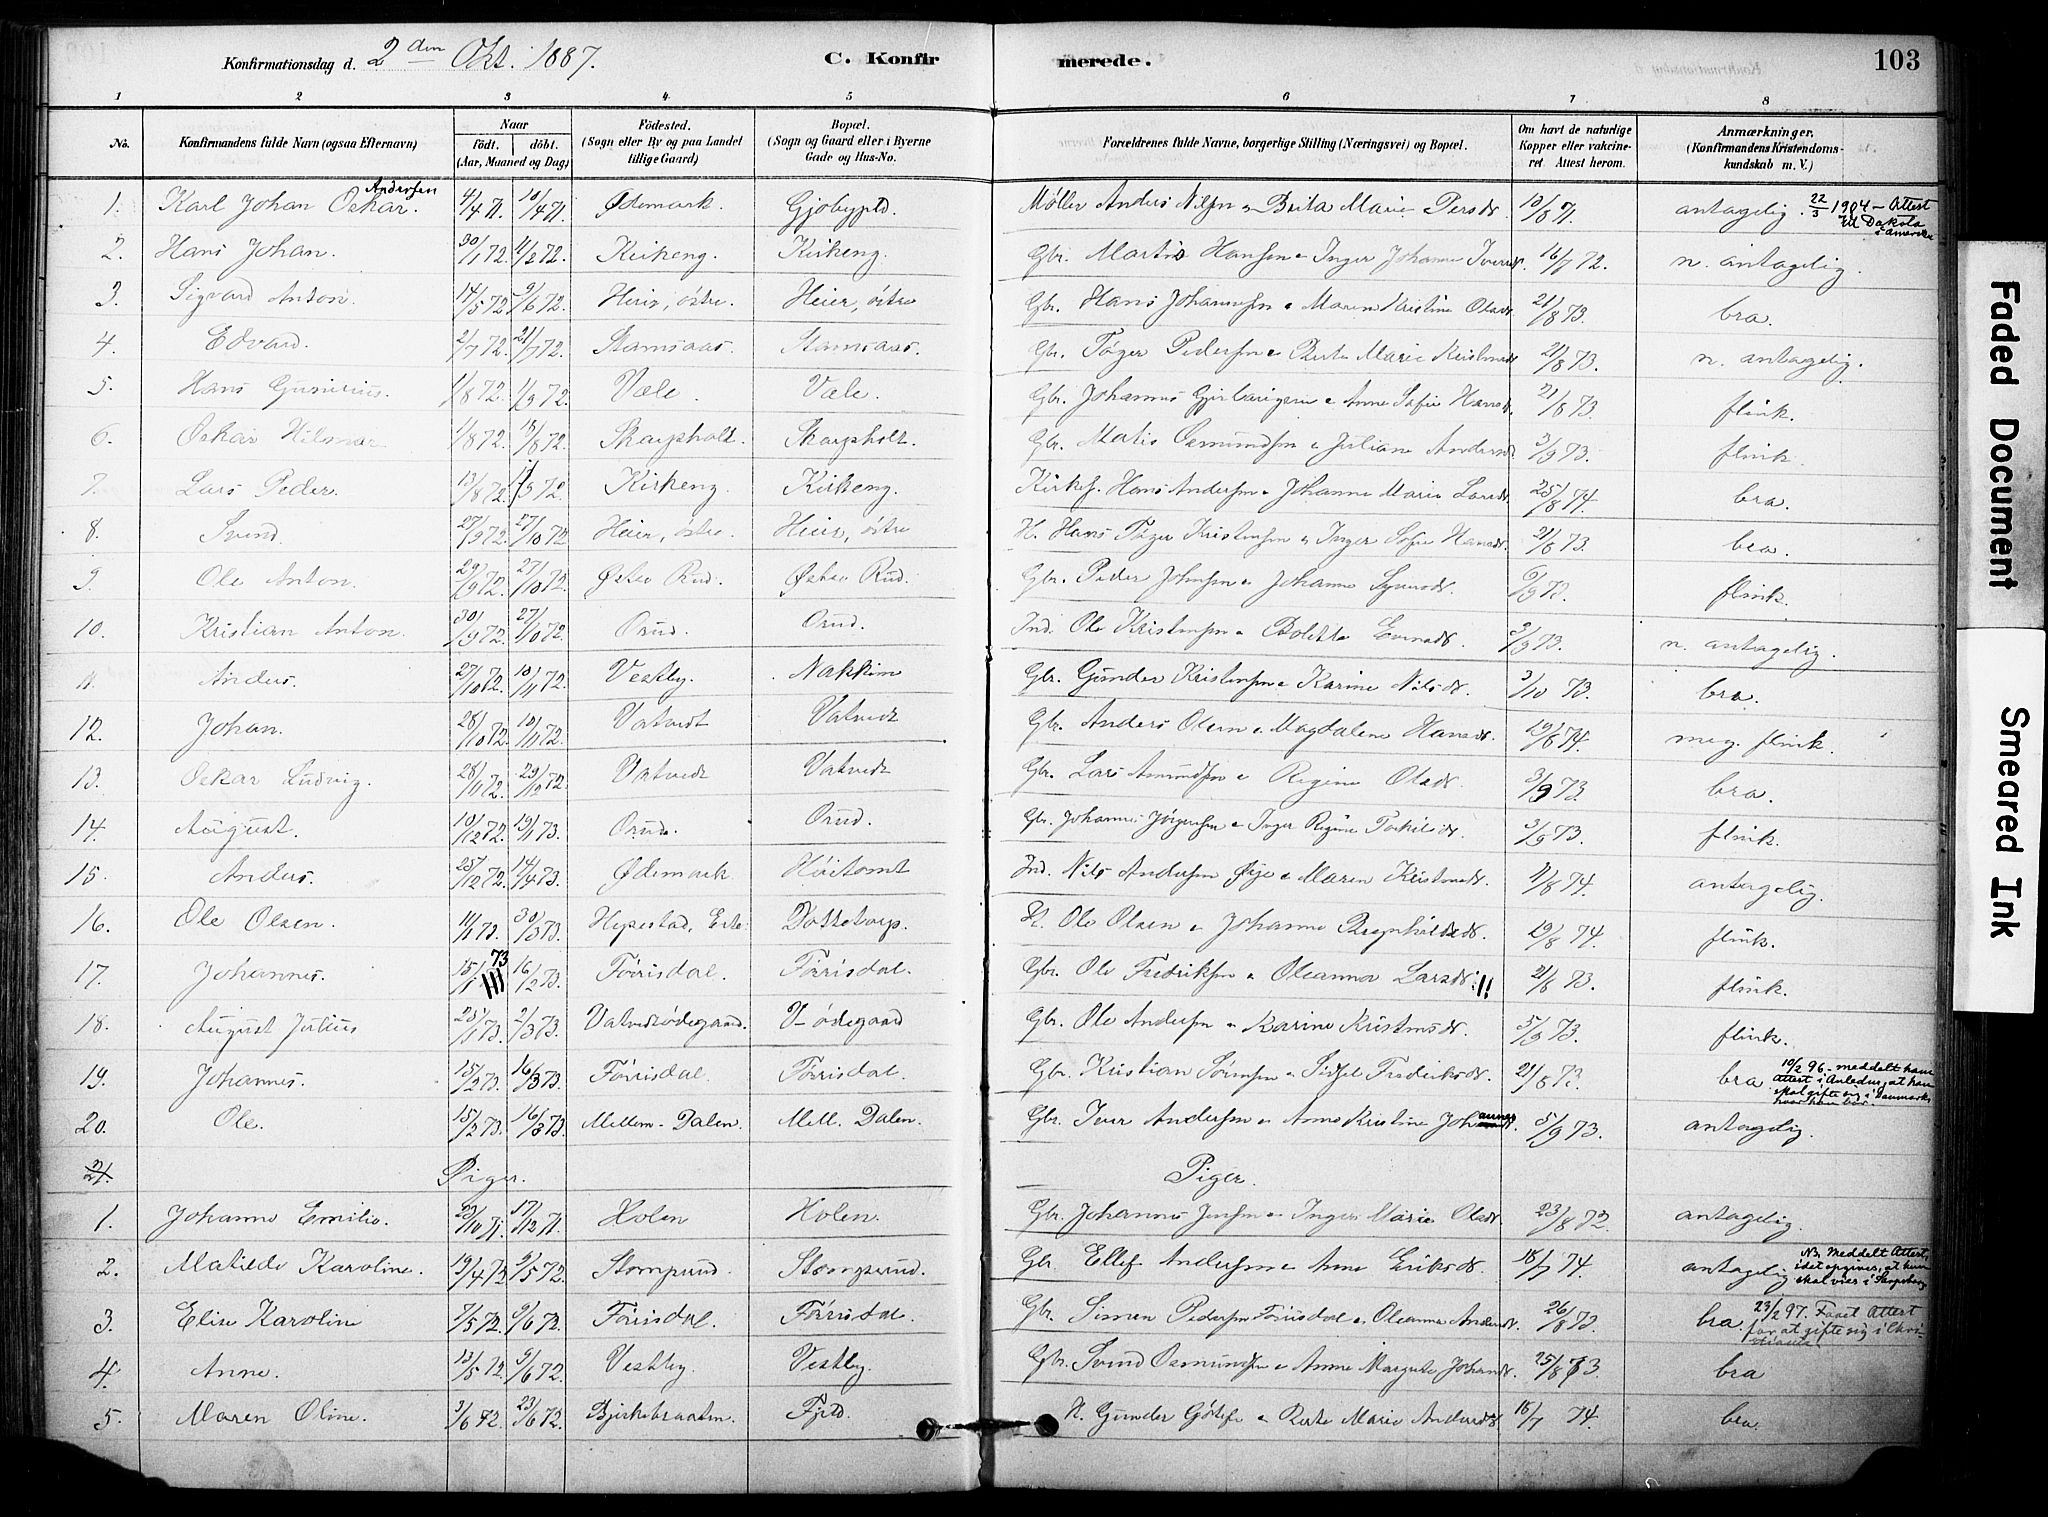 Konfirmationsdag d. 2den Okt. 1887. C. Konfirmerede. 103
1 2 3 4 5 6 7 8
No. Konfirmandens fulde Navn (ogsaa Efternavn) Naar født. døbt. (Aar, Maaned og Dag) Fødested. (Sogn eller By og paa Landet tillige Gaard) Bopæl. (Sogn og Gaard eller i Byerne Gade og Hus-No. Forældrenes fulde Navne, borgerlige Stilling (Næringsvei) og Bopæl. Om havt de naturlige Kopper eller vakcineret Attest herom. Anmærkninger. (Konfirmandens Kristendomskundskab m. V.)
1. Karl Johan Oskar. Andersen 4/4 71. 10/4 71. Ødemark. Møller Anders Nilsen o Brita Marie Persdr. 10/8 71. antagelig. 22/3 1904 - Attest til Dakota i Amerika
2. Hans Johan. 30/1 72. 11/2 72. Kirkeng. Kirkeng. Gbr. Martin Hansen o Inger Johanne Iversdr. 16/7 72. n. antagelig.
3. Sigvard Anton. 14/5 72 9/6 72. Heier, østre. Heier, østre Gbr. Hans Johannesen o Maren Kristine Olsdr 21/8 73. bra.
4. Edvard. 2/7 72. 21/7 72. Stamsaas. Stamsaas. Gbr. Tøger Pedersen o Berte Marie Kristensdr 21/8 73. n. antagelig.
5. Hans 1/8 72. 1/9 72. Væle. Væle. Gbr. Johannes o Anne Sofie Hansdr. 21/8 73. flink.
6. Oskar Hilmar 1/8 72. 18/8 72. Skarpholt. Skarpholt. Gbr. Matis Osmundsen o Juliane Andersdr. 3/9 73. flink.
7. Lars Peder. 13/8 72. 1/9 72. Kirkeng. Kirkeng. Kirkes. Hans Andersen o Johanne Marie Larsdr. 25/8 74. bra.
8. Svend. 27/9 72. 27/10 72 Heier, østre. Heier, østre H. Hans Tøger Kristensen o Inger Sofie Hansdr. 21/8 73. bra.
9. Ole Anton. 29/9 72. 27/10 72. Østre Rud. Østre Rud. Gbr. Peder Johnsen o Johanne flink.
10. Kristian Anton. 30/9 72. 27/10 72. Orud. Orud. Ind. Ole Kristensen o Bolette Evensdr. 3/9 73. n. antagelig.
11. Anders. 27/10 72. 10/11 72. Vestby. Nakkim Gbr. Gunder Kristensen o Karine Nilsdr. 3/10 73. bra.
12. Johan. 28/10 72. 10/11 72. Vatvedt Vatvedt Gbr. Anders Olsen o Magdalene Hansdr. 19/8 74. meg. flink.
13. Oskar Ludvig. 28/11 72. 29/12 72. Vatvedt Vatvedt Gbr. Lars Amundsen o Regine Olsdr. 3/9 73. bra.
14. August. 10/12 72. 19/1 73. Orud. Orud. Gbr. Johannes Jørgensen o Inger Regine Torkilsdr. 3/9 73. flink.
15. Anders. 25/12 72. 14/4 73. Ødemark Høitomt Ind. Nils Andersen Øije o Maren Kristensdr. 11/8 74. antagelig.
16. Ole Olsen. 11/1 73. 30/3 73. Dottetorp. H. Ole Olsen o Johanne 29/8 74. flink.
17. Johannes. 15/1 73 16/2 73. Tørrisdal. Tørrisdal. Gbr. Ole Fredriksen o Oleanna Larsdr. 21/8 73. flink.
18. August Julius 25/1 73. 2/3 73. Vatvedtødegaard. V-ødegaard Gbr. Ole Andersen o Karine Kristensdr. 5/9 73. flink.
19. Johannes. 15/2 73. 16/3 73. Tørrisdal. Tørrisdal. Gbr. Kristian Sørensen o Sidsel Fredriksdr. 21/8 73. bra 10/2 96 - meddelt ham Attest i Anledn. at han skal gifte sig i Danmark, hvor han bor.
20. Ole. 15/2 73. 16/3 73. Mellem-Dalen. Mell. Dalen. Gbr. Iver Andersen o Anne Kristine Johannesdr. 5/9 73. antagelig.
21. Piger. Piger.
1. Johanne Emilie. 23/10 71. 17/12 71. Holen Holen. Gbr. Johannes Jensen o Inger Marie Olsdr. 23/8 72. antagelig.
2. Matilde Karoline. 19/4 72 9/5 72. Gbr. Ellef Andersen o Anne Eriksdr. 18/7 74. antagelig NB. meddelt Attest, idet opgives, at hun skal vies i Sarpsborg
3. Elise Karoline 7/5 72. 9/6 72. Tørrisdal. Tørrisdal. Gbr. Simen Pedersen Tørrisdal o Oleanne Andersdr. 26/8 73. bra 23/2 97. Faaet Attest for at gifte sig i Christiania
4. Anne. 13/5 72. 9/6 72. Vestby. Vestby. Gbr. Svend Osmundsen o Anne Margrete Johansdr. 25/8 73 bra
5. Maren Oline. 3/6 72. 23/6 72. Bjirkebraaten. Fjeld. H. Gunder o Berte Marie Andersdr 18/7 74. bra.
Faded Document
Smeared Ink